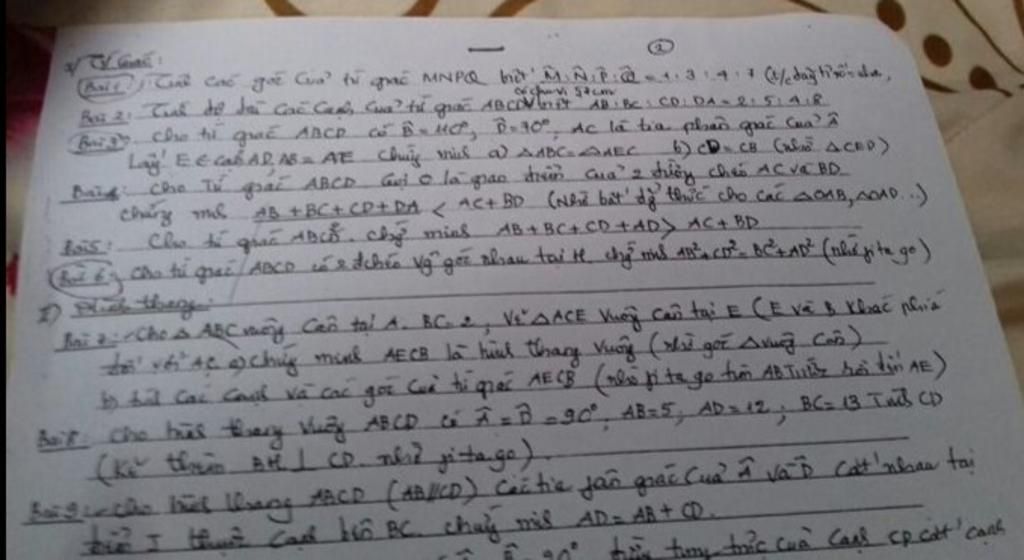 ②
I) Tứ Giác:
Bài 1: Tính các góc của tứ giác MNPQ biết M̂:N̂:P̂:Q̂ = 1:3:4:7 (t/c dãy tỉ số
có chu vi 57cm
Bài 2: Tính độ dài các cạnh của tứ giác ABCD biết AB:BC:CD:DA = 2:5:4:8
Bài 3: Cho tứ giác ABCD có B̂ = 110°, D̂ = 70°, AC là tia phân giác của Â
Lấy E ∈ cạnh AD, AB = AE chứng minh a) △ABC = △AEC b) CD = CB (nhờ △CED)
Bài 4: Cho Tứ giác ABCD Gọi O là giao điểm của 2 đường chéo AC và BD
chứng mh AB + BC + CD + DA < AC + BD (Nhờ bất đg thức cho các △OAB, △OAD...)
Bài 5: Cho tứ giác ABCD. chg minh AB + BC + CD + AD > AC + BD
Bài 6: Cho tứ giác ABCD có 2 đchéo vg góc nhau tại H. chg mh AB² + CD² = BC² + AD² (nhờ pitago)
II) Hình thang:
Bài 7: Cho △ ABC vuông Cân tại A. BC = 2, Vẽ △ACE Vuông Cân tại E (E và B khác phía
đối với AC a) Chứng minh AECB là hình thang vuông (nhờ góc △vuông Cân)
b) tính các cạnh và các góc của tứ giác AECB (nhờ pitago tính AB trước rồi AE)
Bài 8: Cho hình thang Vuông ABCD có Â = D̂ = 90°, AB = 5, AD = 12, BC = 13 Tính CD
(Kẻ thêm BH ⊥ CD. nhờ pitago).
Bài 9: Cho hình thang ABCD (AB//CD) các tia phân giác của Â Và D̂ Cắt nhau tại
điểm I thuộc Cạnh bên BC. chứng minh AD = AB + CD.
90° trung trực của Cạnh CD cắt cạnh